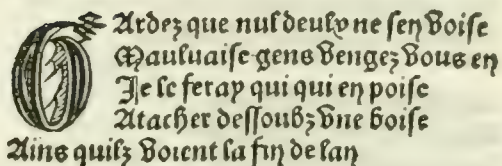 GArdez que nul deulx ne sen voise
Mauluaise gens vengez vous en
Je le feray qui qui en poise
Atacher dessoubz vne boise
Ains quilz voient la fin de lan